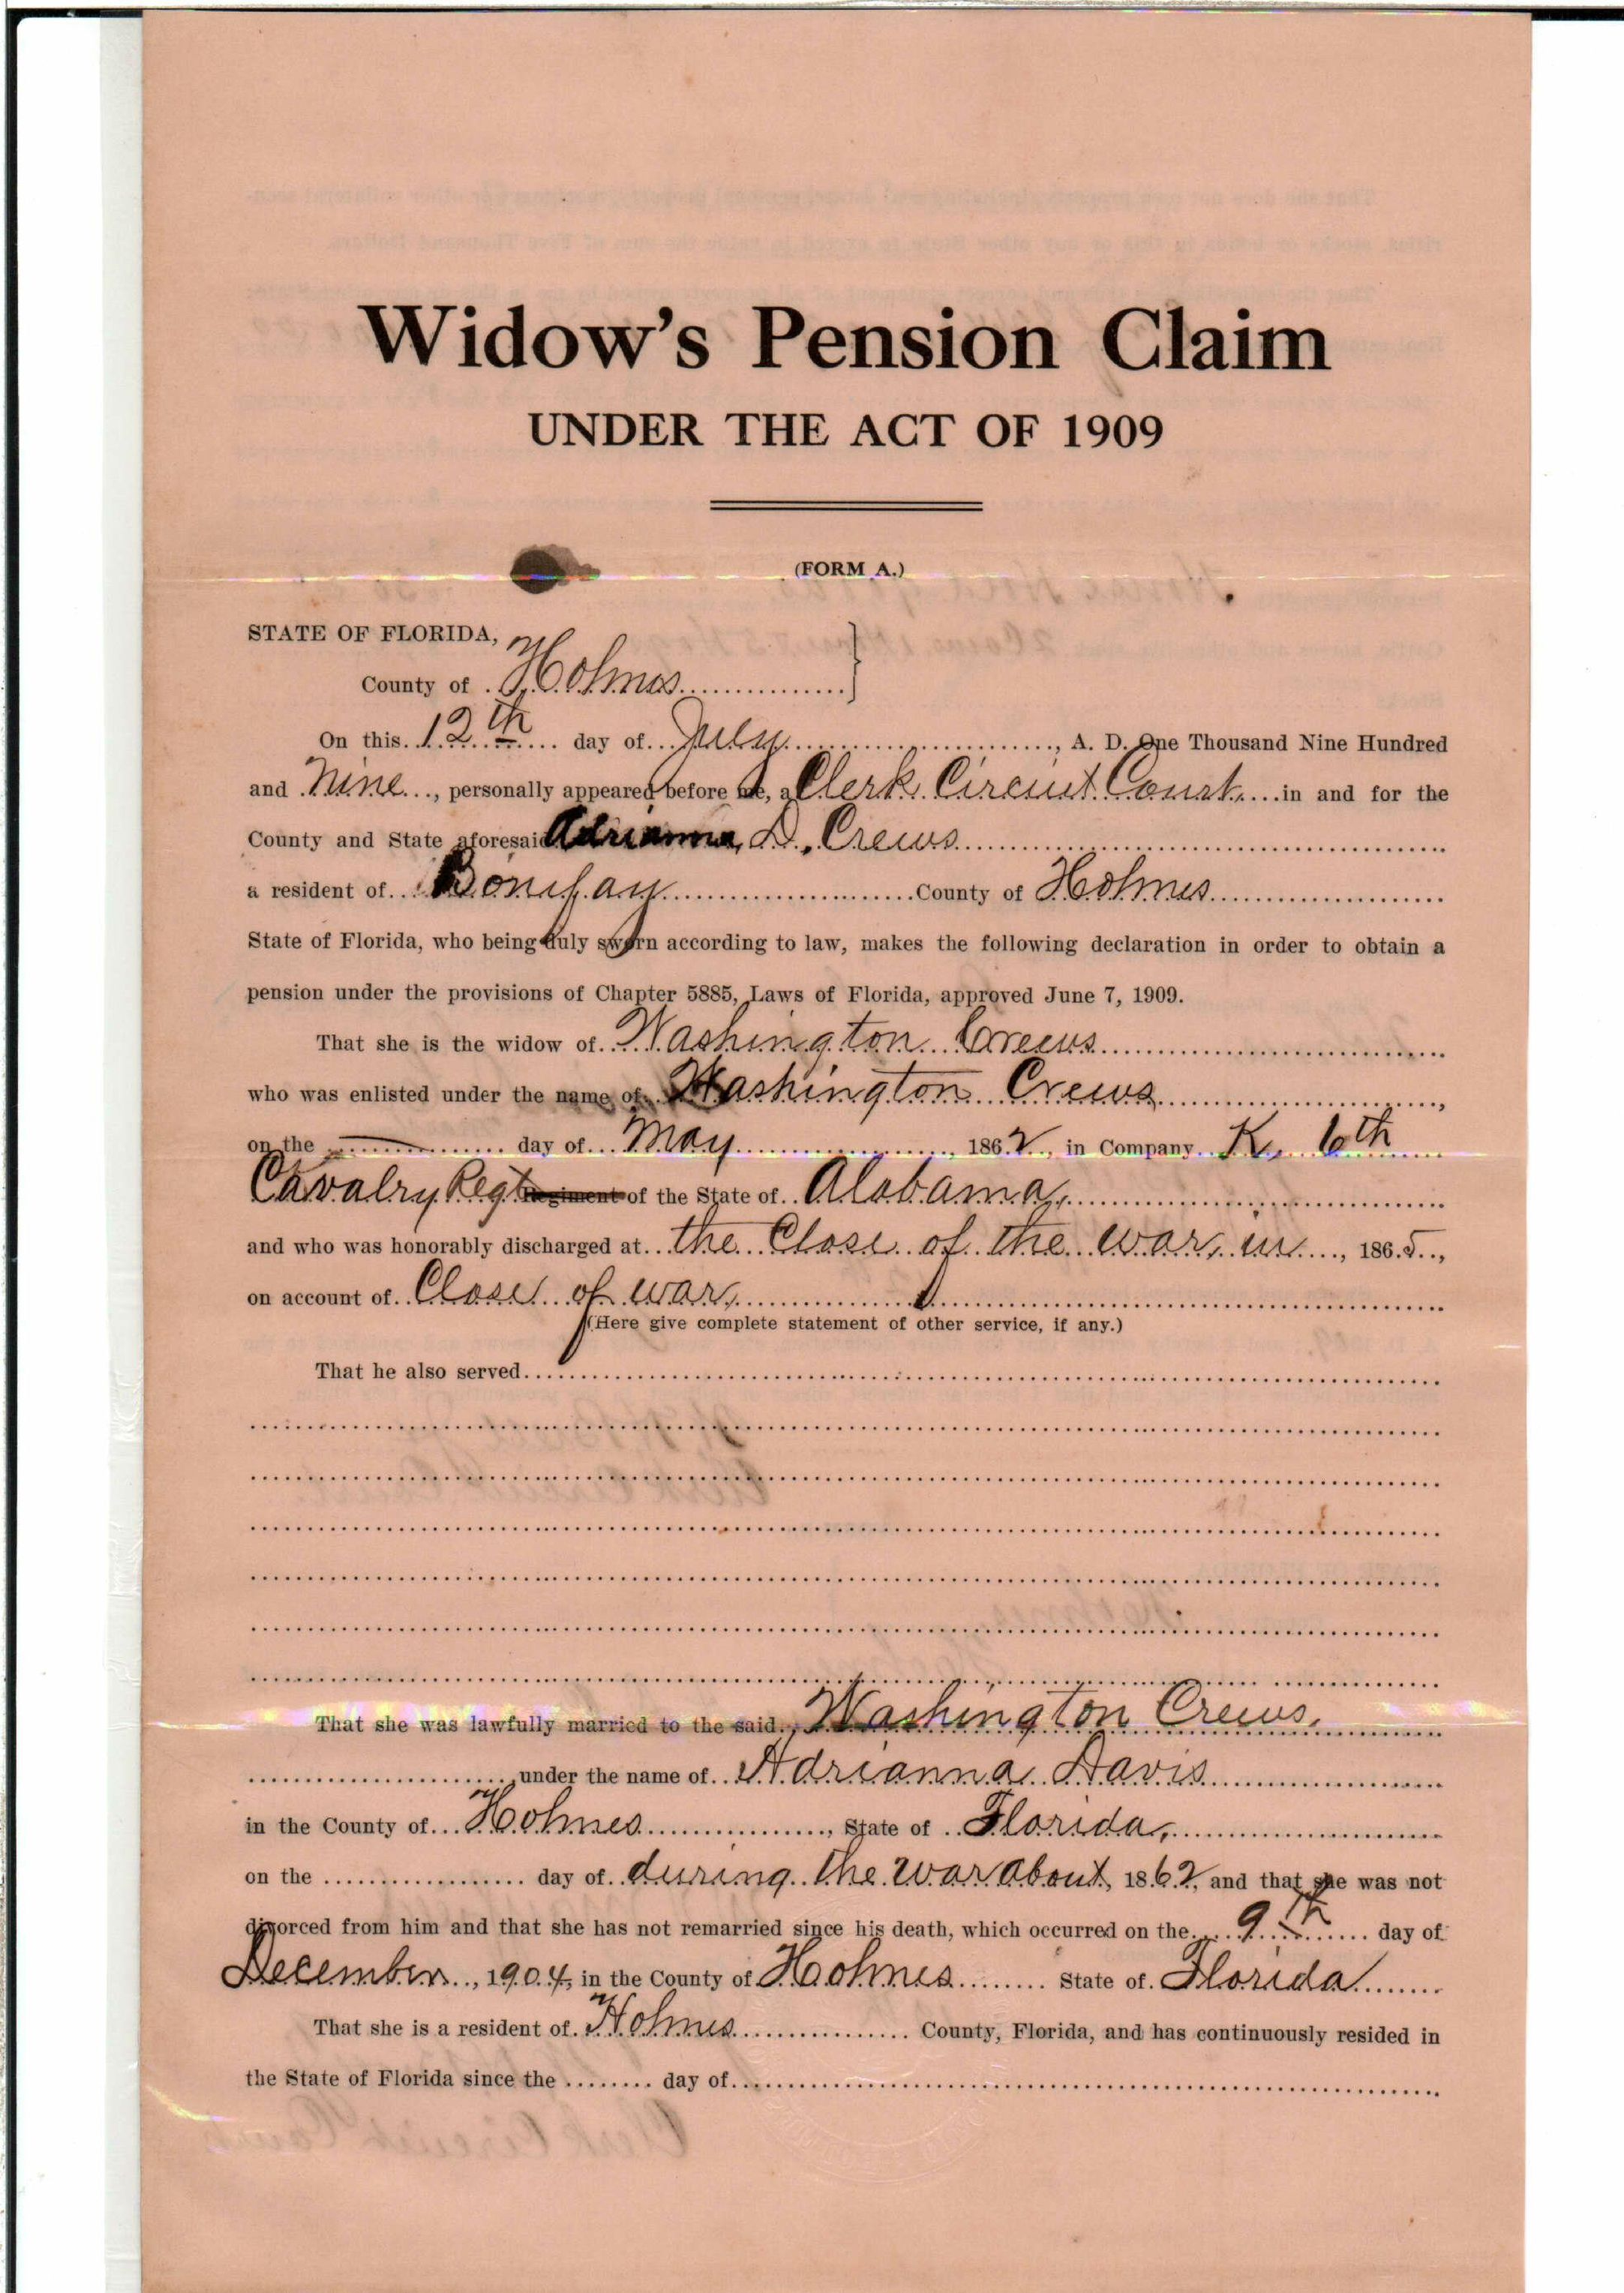 Widow's Pension Claim
UNDER THE ACT OF 1909
(FORM A.)
STATE OF FLORIDA,
County of Holmes
On this 12th day of July, A. D. One Thousand Nine Hundred
and Nine, personally appeared before me, a Clerk Circuit Court in and for the
County and State aforesaid Adrianna D. Crews
a resident of Bonifay County of Holmes
State of Florida, who being duly sworn according to law, makes the following declaration in order to obtain a
pension under the provisions of Chapter 5885, Laws of Florida, approved June 7, 1909.
That she is the widow of Washington Crews
who was enlisted under the name of Washington Crews,
on the day of May, 1862, in Company K, 6th
Cavalry Regt Regiment of the State of Alabama,
and who was honorably discharged at the Close of the war, in, 1865,
on account of Close of war,
(Here give complete statement of other service, if any.)
That he also served
That she was lawfully married to the said Washington Crews,
under the name of Adrianna Davis
in the County of Holmes, State of Florida,
on the day of during the war about, 1862, and that she was not
divorced from him and that she has not remarried since his death, which occurred on the 9th day of
December, 1904, in the County of Holmes State of Florida
That she is a resident of Holmes County, Florida, and has continuously resided in
the State of Florida since the day of